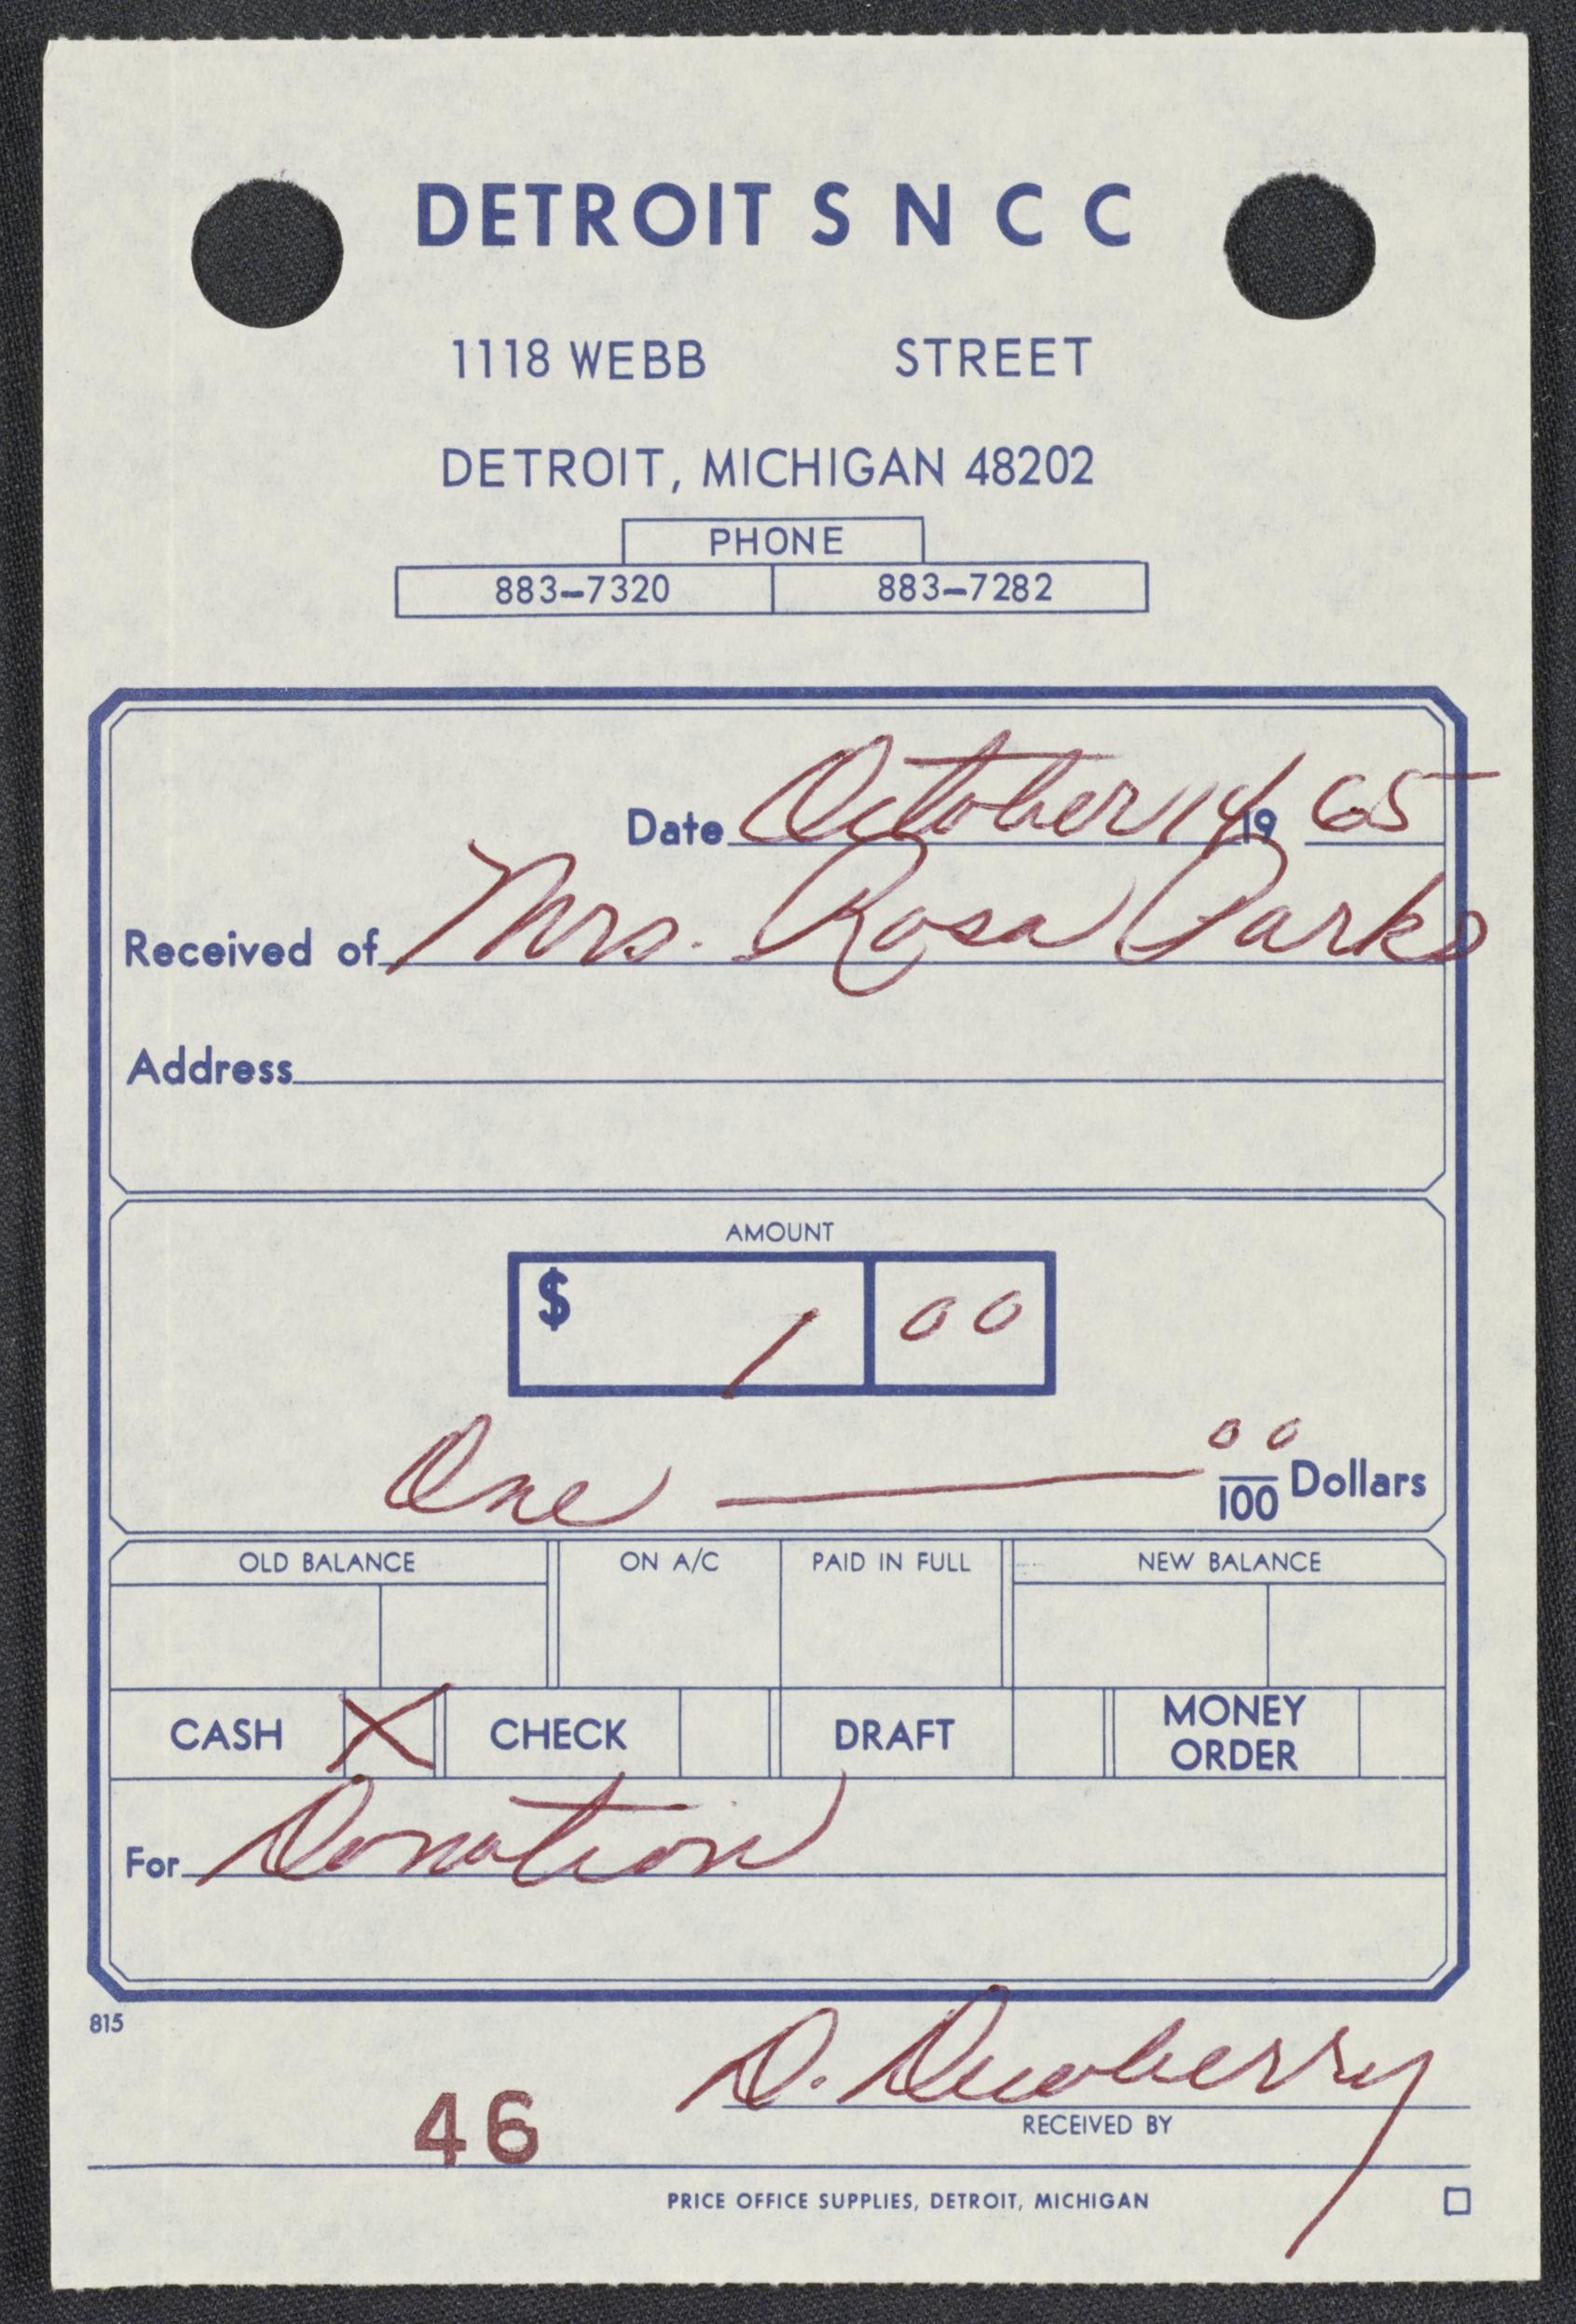 DETROIT S N C C
1118 WEBB STREET
DETROIT, MICHIGAN 48202
PHONE
883-7320 883-7282
Date October 14 19 65
Received of Mrs. Rosa Parks
Address
AMOUNT
$ 1 00
One 00/100 Dollars
OLD BALANCE ON A/C PAID IN FULL NEW BALANCE
CASH X CHECK DRAFT MONEY ORDER
For Donation
815
D. Dewberry
46
RECEIVED BY
PRICE OFFICE SUPPLIES, DETROIT, MICHIGAN